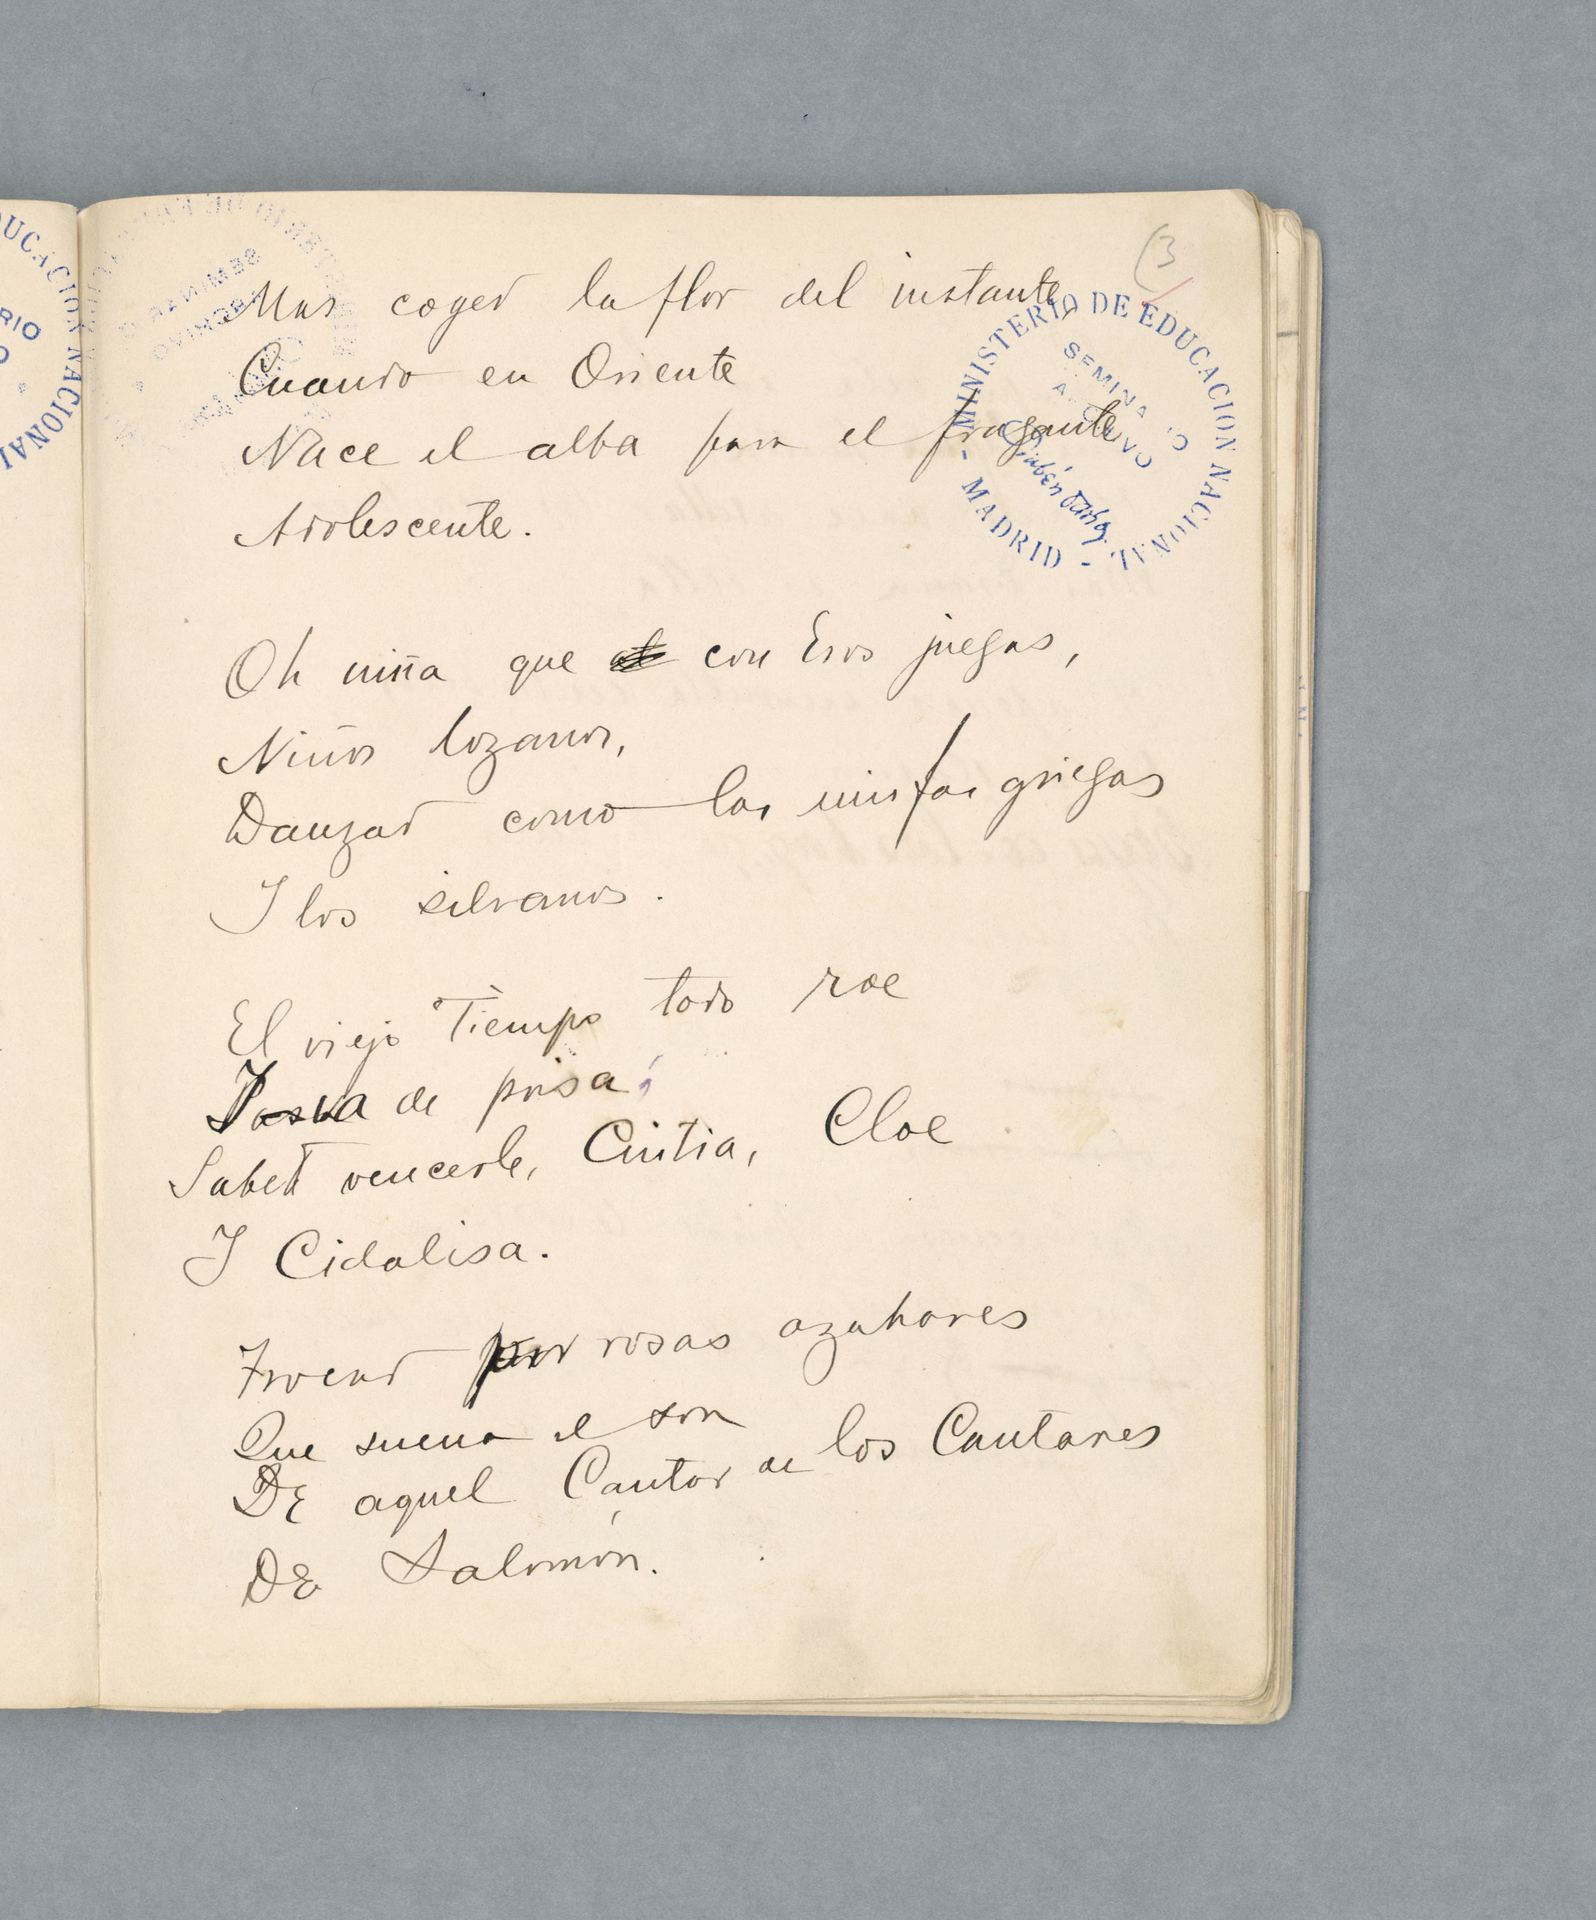 (3
Mas coged la flor del instante,
Cuando en Oriente
Nace el alba para el fragante
Adolescente.
Oh niña que con Eros juegas,
Niños lozanos,
Danzad como las ninfas griegas
I los silvanos.
El viejo Tiempo todo roe
I va de prisa;
Sabed vencerle, Cintia, Cloe
I Cidalisa.
Trocad por rosas azahares
Que suena el son
De aquel Cantor de los Cantares
De Salomón.
MINISTERIO DE EDUCACION NACIONAL
- MADRID -
SEMINARIO
ARCHIVO
Rubén Darío
EDUCACION NACIONAL